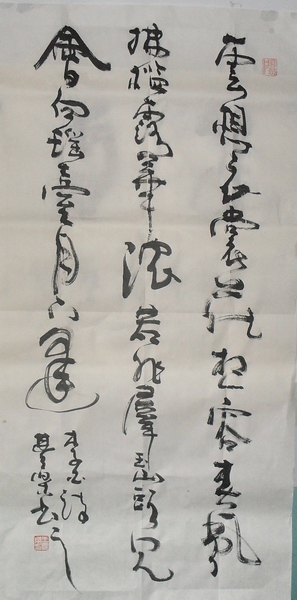 雲想衣裳花想容春風
拂檻露華濃若非群玉山頭見
會向瑤臺月下逢
李白詩
書